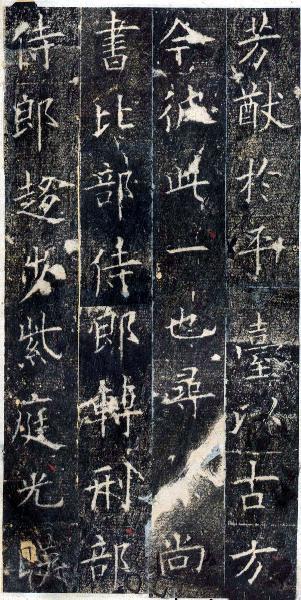 芳猷於平臺以古方
今彼此一也尋尚
書比部侍郎轉刑部
侍郎趍步紫庭光暎